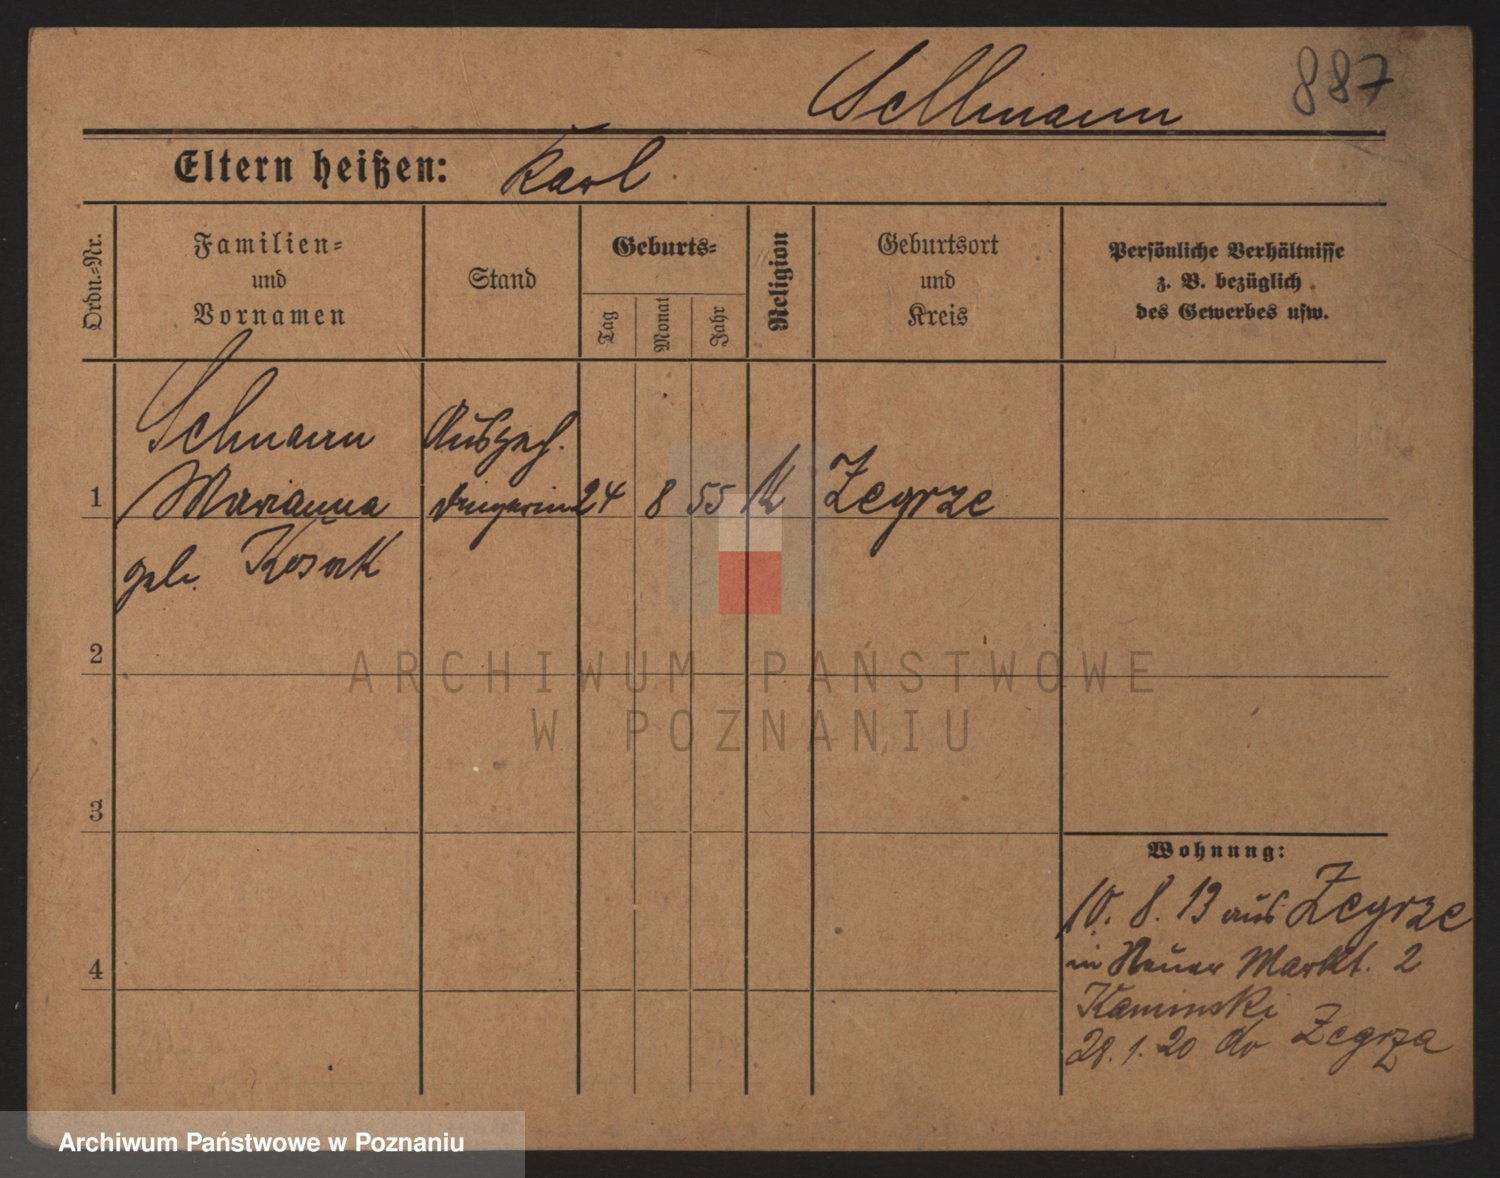 Sellmann 887
Eltern heißen: Karl.
Ordn.-Nr.
Familien-
und
Vornamen
Stand
Geburts-
Tag
Monat
Jahr
Religion
Geburtsort
und
Kreis
Persönliche Verhältnisse
z. B. bezüglich
des Gewerbes usw.
Selmann
1 Marianna 24 8 55 K Zegrze
geb. Kosak
2
3
4
Wohnung:
10. 8. 13 aus Zegrze
in Neuer Markt. 2
Kaminski
28. 1. 20 do Zegrza
ARCHIWUM PAŃSTWOWE
W POZNANIU
Archiwum Państwowe w Poznaniu